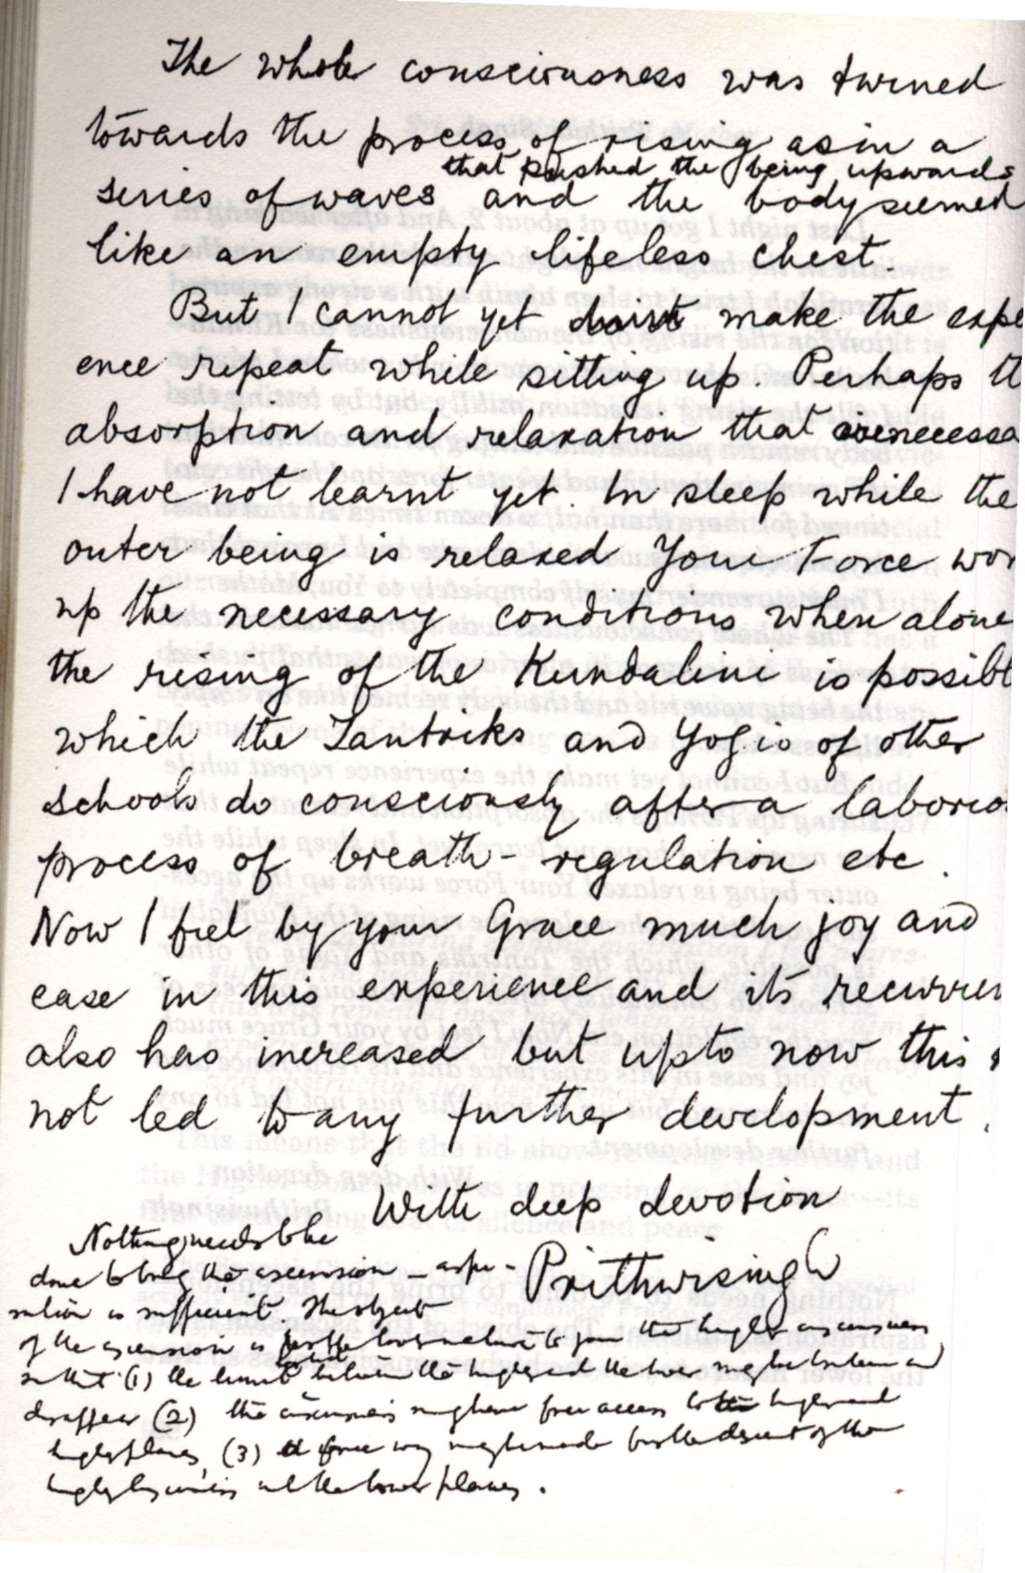 The whole consciousness was turned
towards the process of rising as in a
that pushed the being upwards
series of waves and the body seemed
like an empty lifeless chest.
But I cannot yet make the expe
ence repeat while sitting up. Perhaps th
absorption and relaxation that is necessa
I have not learnt yet. In sleep while the
outer being is relaxed Your Force wor
up the necessary conditions when alone
the rising of the Kundalini is possibl
which the Tantriks and Yogis of other
schools do consciously after a laborio
process of breath-regulation etc.
Now I feel by your Grace much joy and
ease in this experience and its recurren
also has increased but upto now this
not led to any further development.
With deep devotion
Prithwisingh
Nothing needs to be
done to bring the ascension – aspi-
ration is sufficient. The object
of the ascension is for the lower nature to join the higher consciousness
so that (1) the limit between the higher and the lower may be broken and
disappear (2) the consciousness may have free access to higher and
higher planes, (3) a free way may be made for the descent of the
higher in all the lower planes.